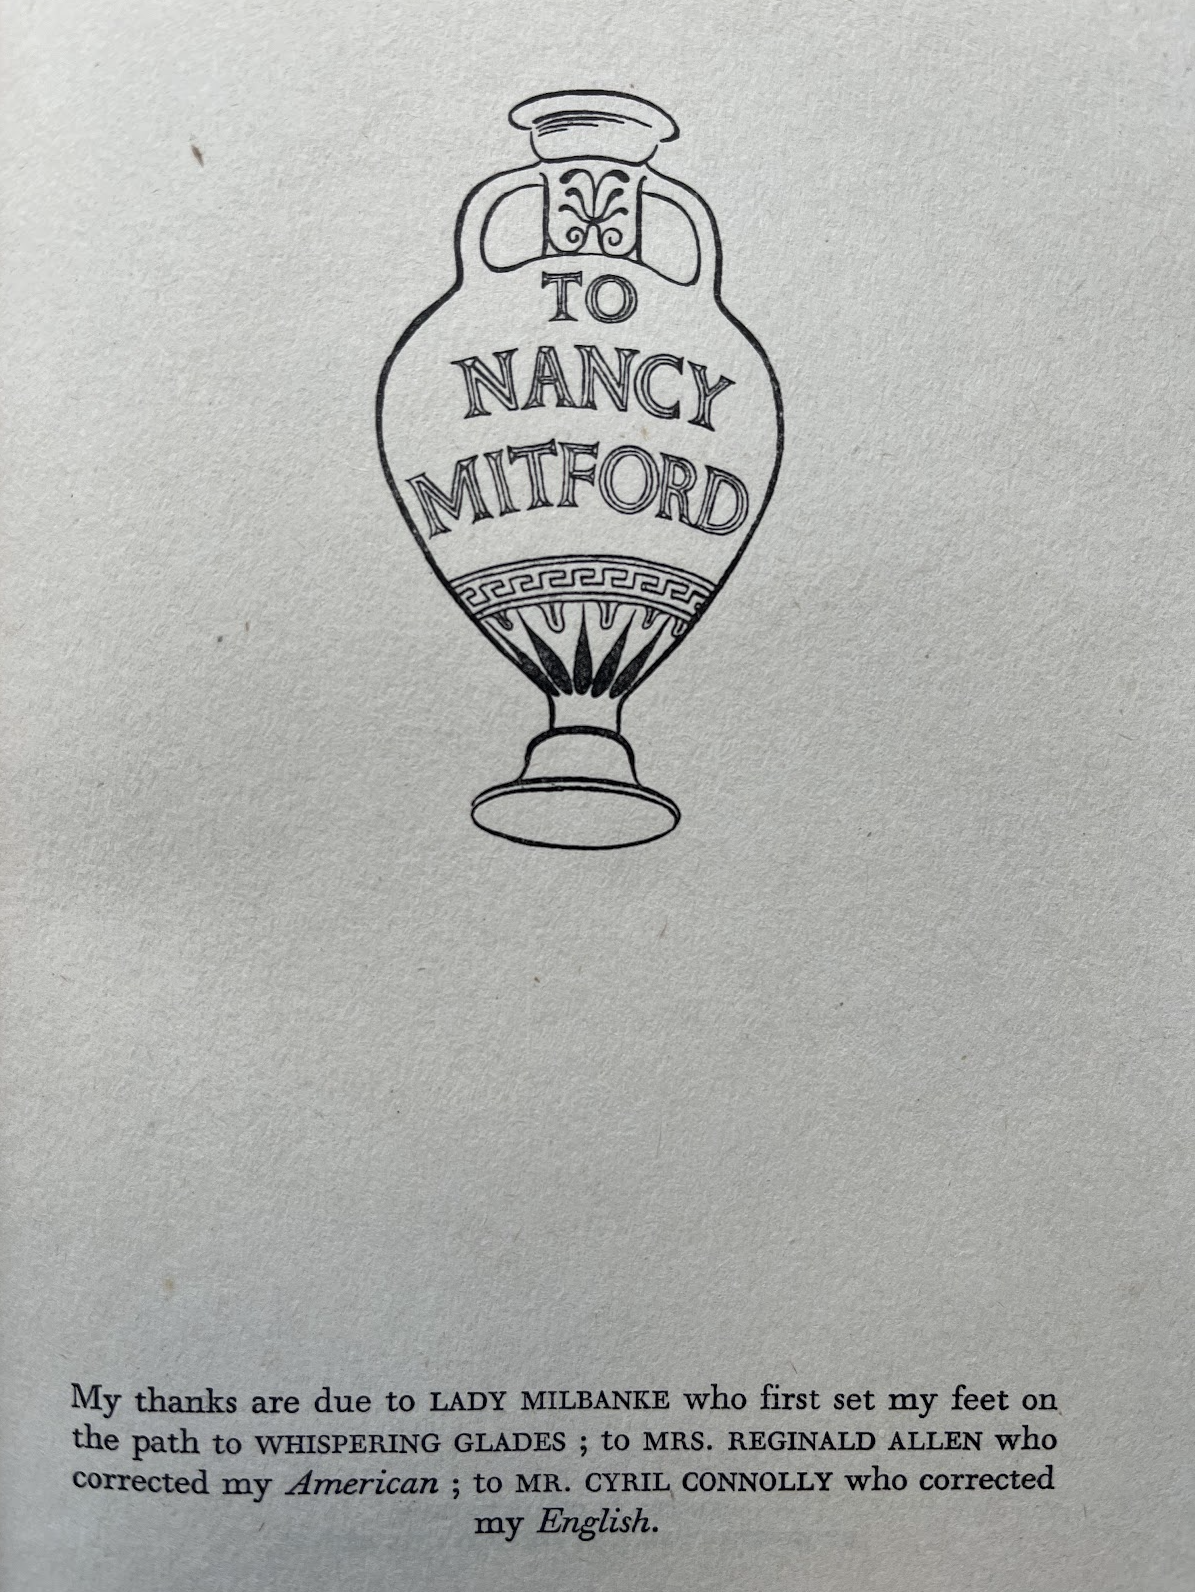 TO
NANCY
MITFORD
My thanks are due to LADY MILBANKE who first set my feet on
the path to WHISPERING GLADES ; to MRS. REGINALD ALLEN who
corrected my American ; to MR. CYRIL CONNOLLY who corrected
my English.